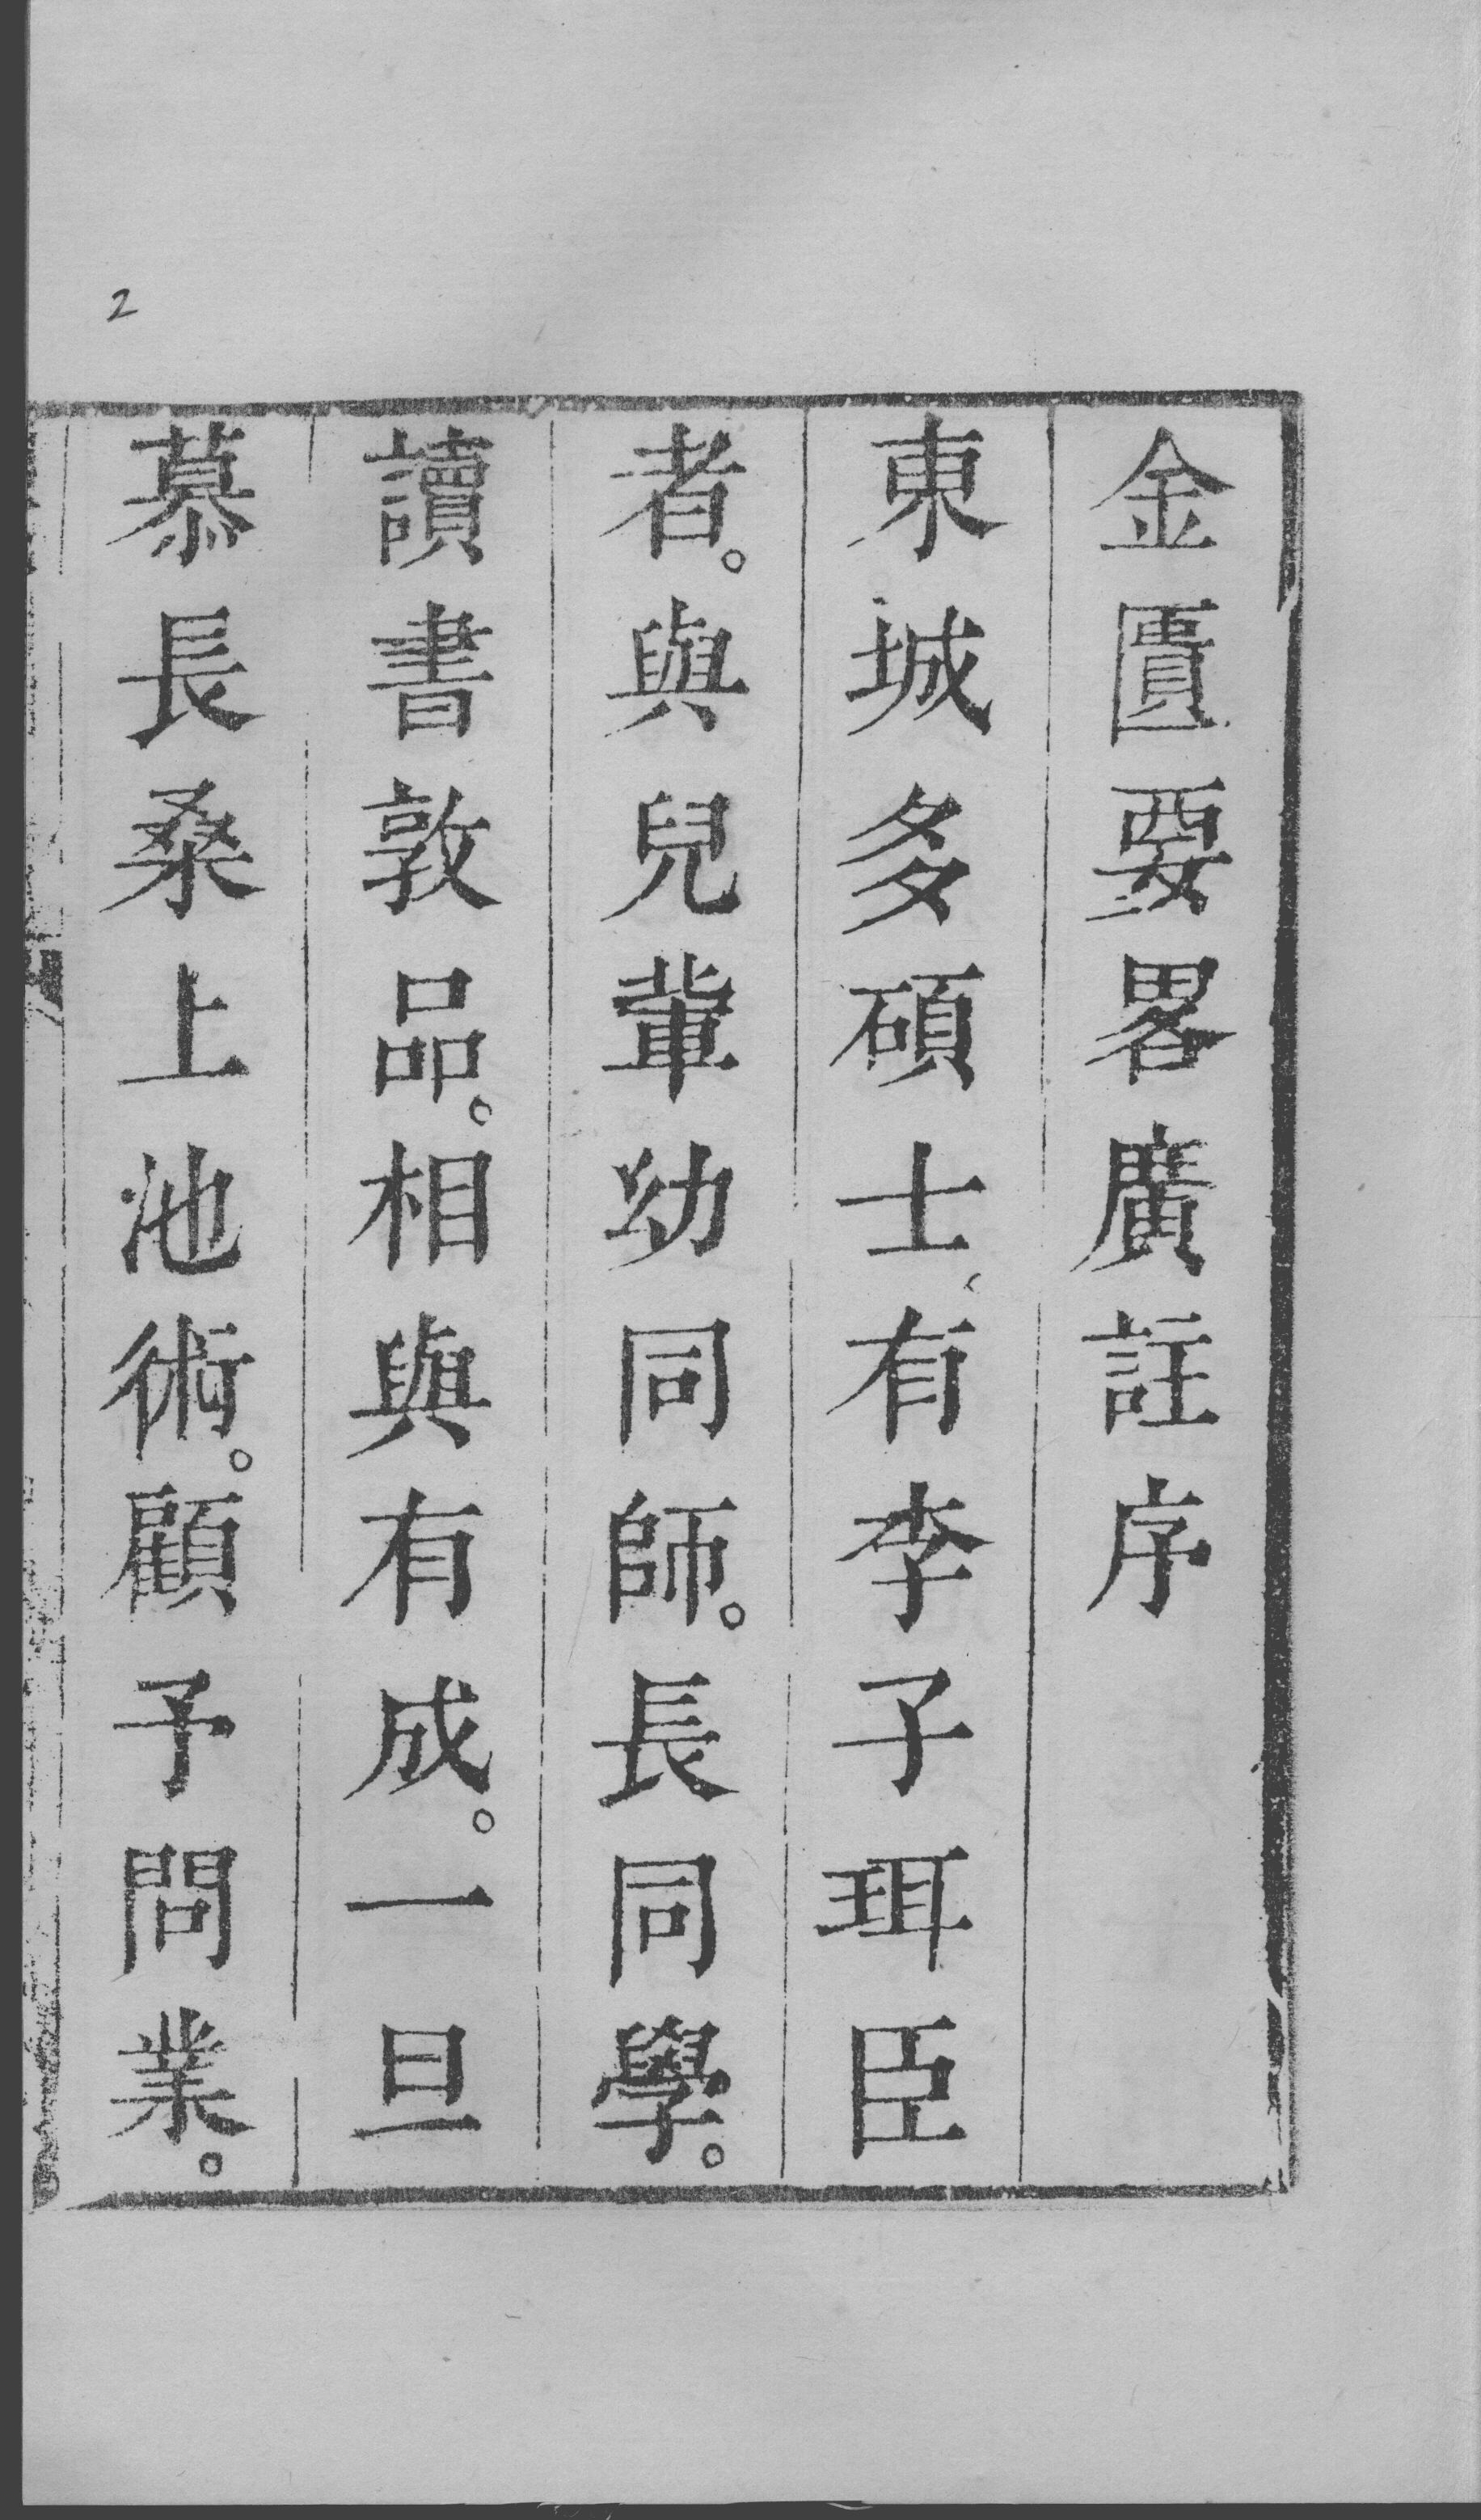 金匱要畧廣註序
東城多碩士、有李子珥臣
者。與兒軰幼同師。長同學。
讀書敦品。相與有成。一旦
慕長桑上池術。顧予問業。
2